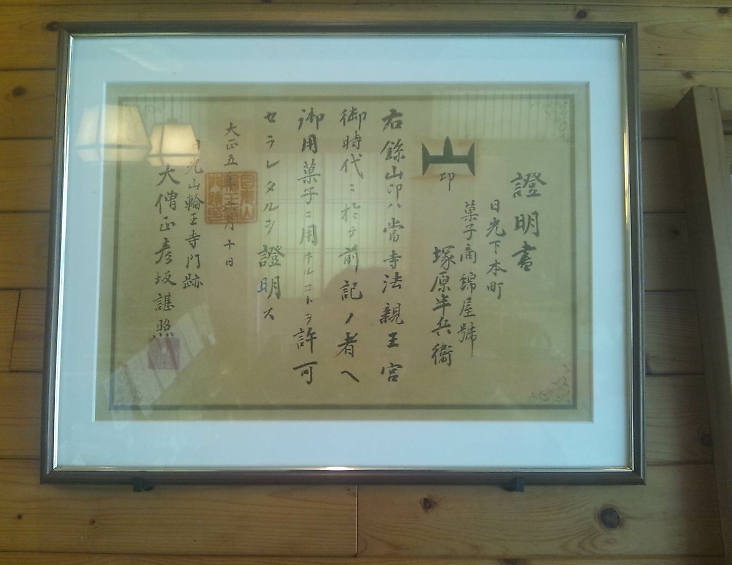 證明書
日光下本町
菓子商 綿屋號
塚原半兵衞
山印
右錺山印ハ當寺法親王宮
御時代ニ於テ前記ノ者ヘ
御用菓子ニ用ユルコトヲ許可
セラレタルヲ證明ス
大正五年 月十日
日光山輪王寺門跡
大僧正彦坂諶照